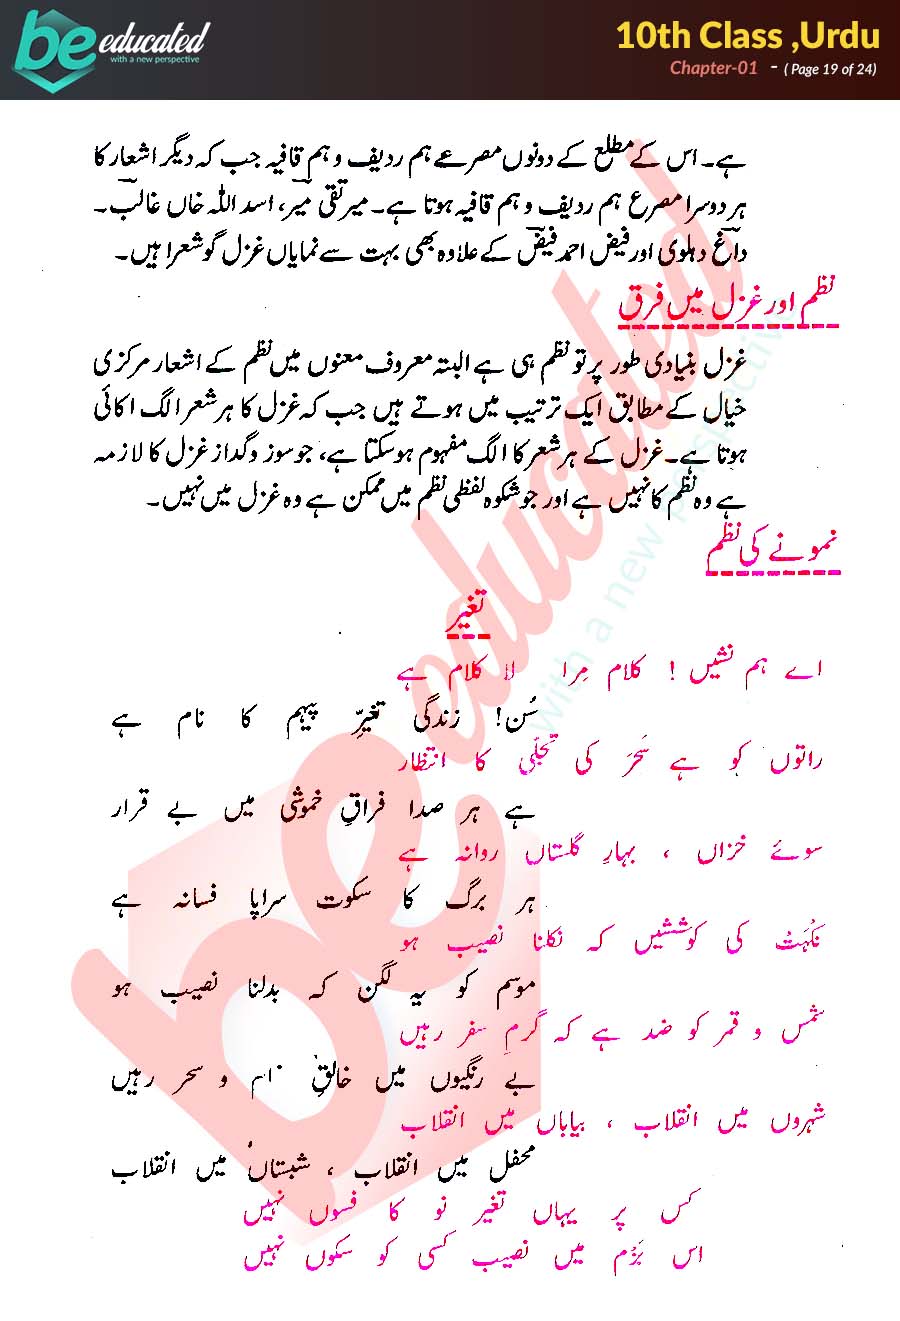 be educated
with a new perspective
10th Class ,Urdu
Chapter-01 - ( Page 19 of 24)
ہے۔ اس کے مطلع کے دونوں مصرعے ہم ردیف و ہم قافیہ جب کہ دیگر اشعار کا
ہر دوسرا مصرع ہم ردیف و ہم قافیہ ہوتا ہے۔ میر تقی میرؔ، اسد اللہ خاں غالبؔ۔
داغؔ دہلوی اور فیض احمد فیضؔ کے علاوہ بھی بہت سے نمایاں غزل گو شعرا ہیں۔
نظم اور غزل میں فرق
غزل بنیادی طور پر تو نظم ہی ہے البتہ معروف معنوں میں نظم کے اشعار مرکزی
خیال کے مطابق ایک ترتیب میں ہوتے ہیں جب کہ غزل کا ہر شعر الگ اکائی
ہوتا ہے۔ غزل کے ہر شعر کا الگ مفہوم ہو سکتا ہے، جو سوز و گداز غزل کا لازمہ
ہے وہ نظم کا نہیں ہے اور جو شکوہ لفظی نظم میں ممکن ہے وہ غزل میں نہیں۔
نمونے کی نظم
تغیر
اے ہم نشیں ! کلام مِرا لا کلام ہے
سُن! زندگی تغیرِّ پیہم کا نام ہے
راتوں کو ہے سَحَر کی تجلّی کا انتظار
ہے ہر صدا فراقِ خموشی میں بے قرار
سوئے خزاں ، بہارِ گلستاں روانہ ہے
ہر برگ کا سکوت سراپا فسانہ ہے
نکہَت کی کوششیں کہ نکلنا نصیب ہو
موسم کو یہ لگن کہ بدلنا نصیب ہو
شمس و قمر کو ضد ہے کہ گرمِ سفر رہیں
بے رنگیوں میں خالقِ و سحر رہیں
شہروں میں انقلاب ، بیاباں میں انقلاب
محفل میں انقلاب ، شبستاں میں انقلاب
کس پر یہاں تغیر نو کا فسوں نہیں
اس بزَم میں نصیب کسی کو سکوں نہیں
be educated
with a new perspective